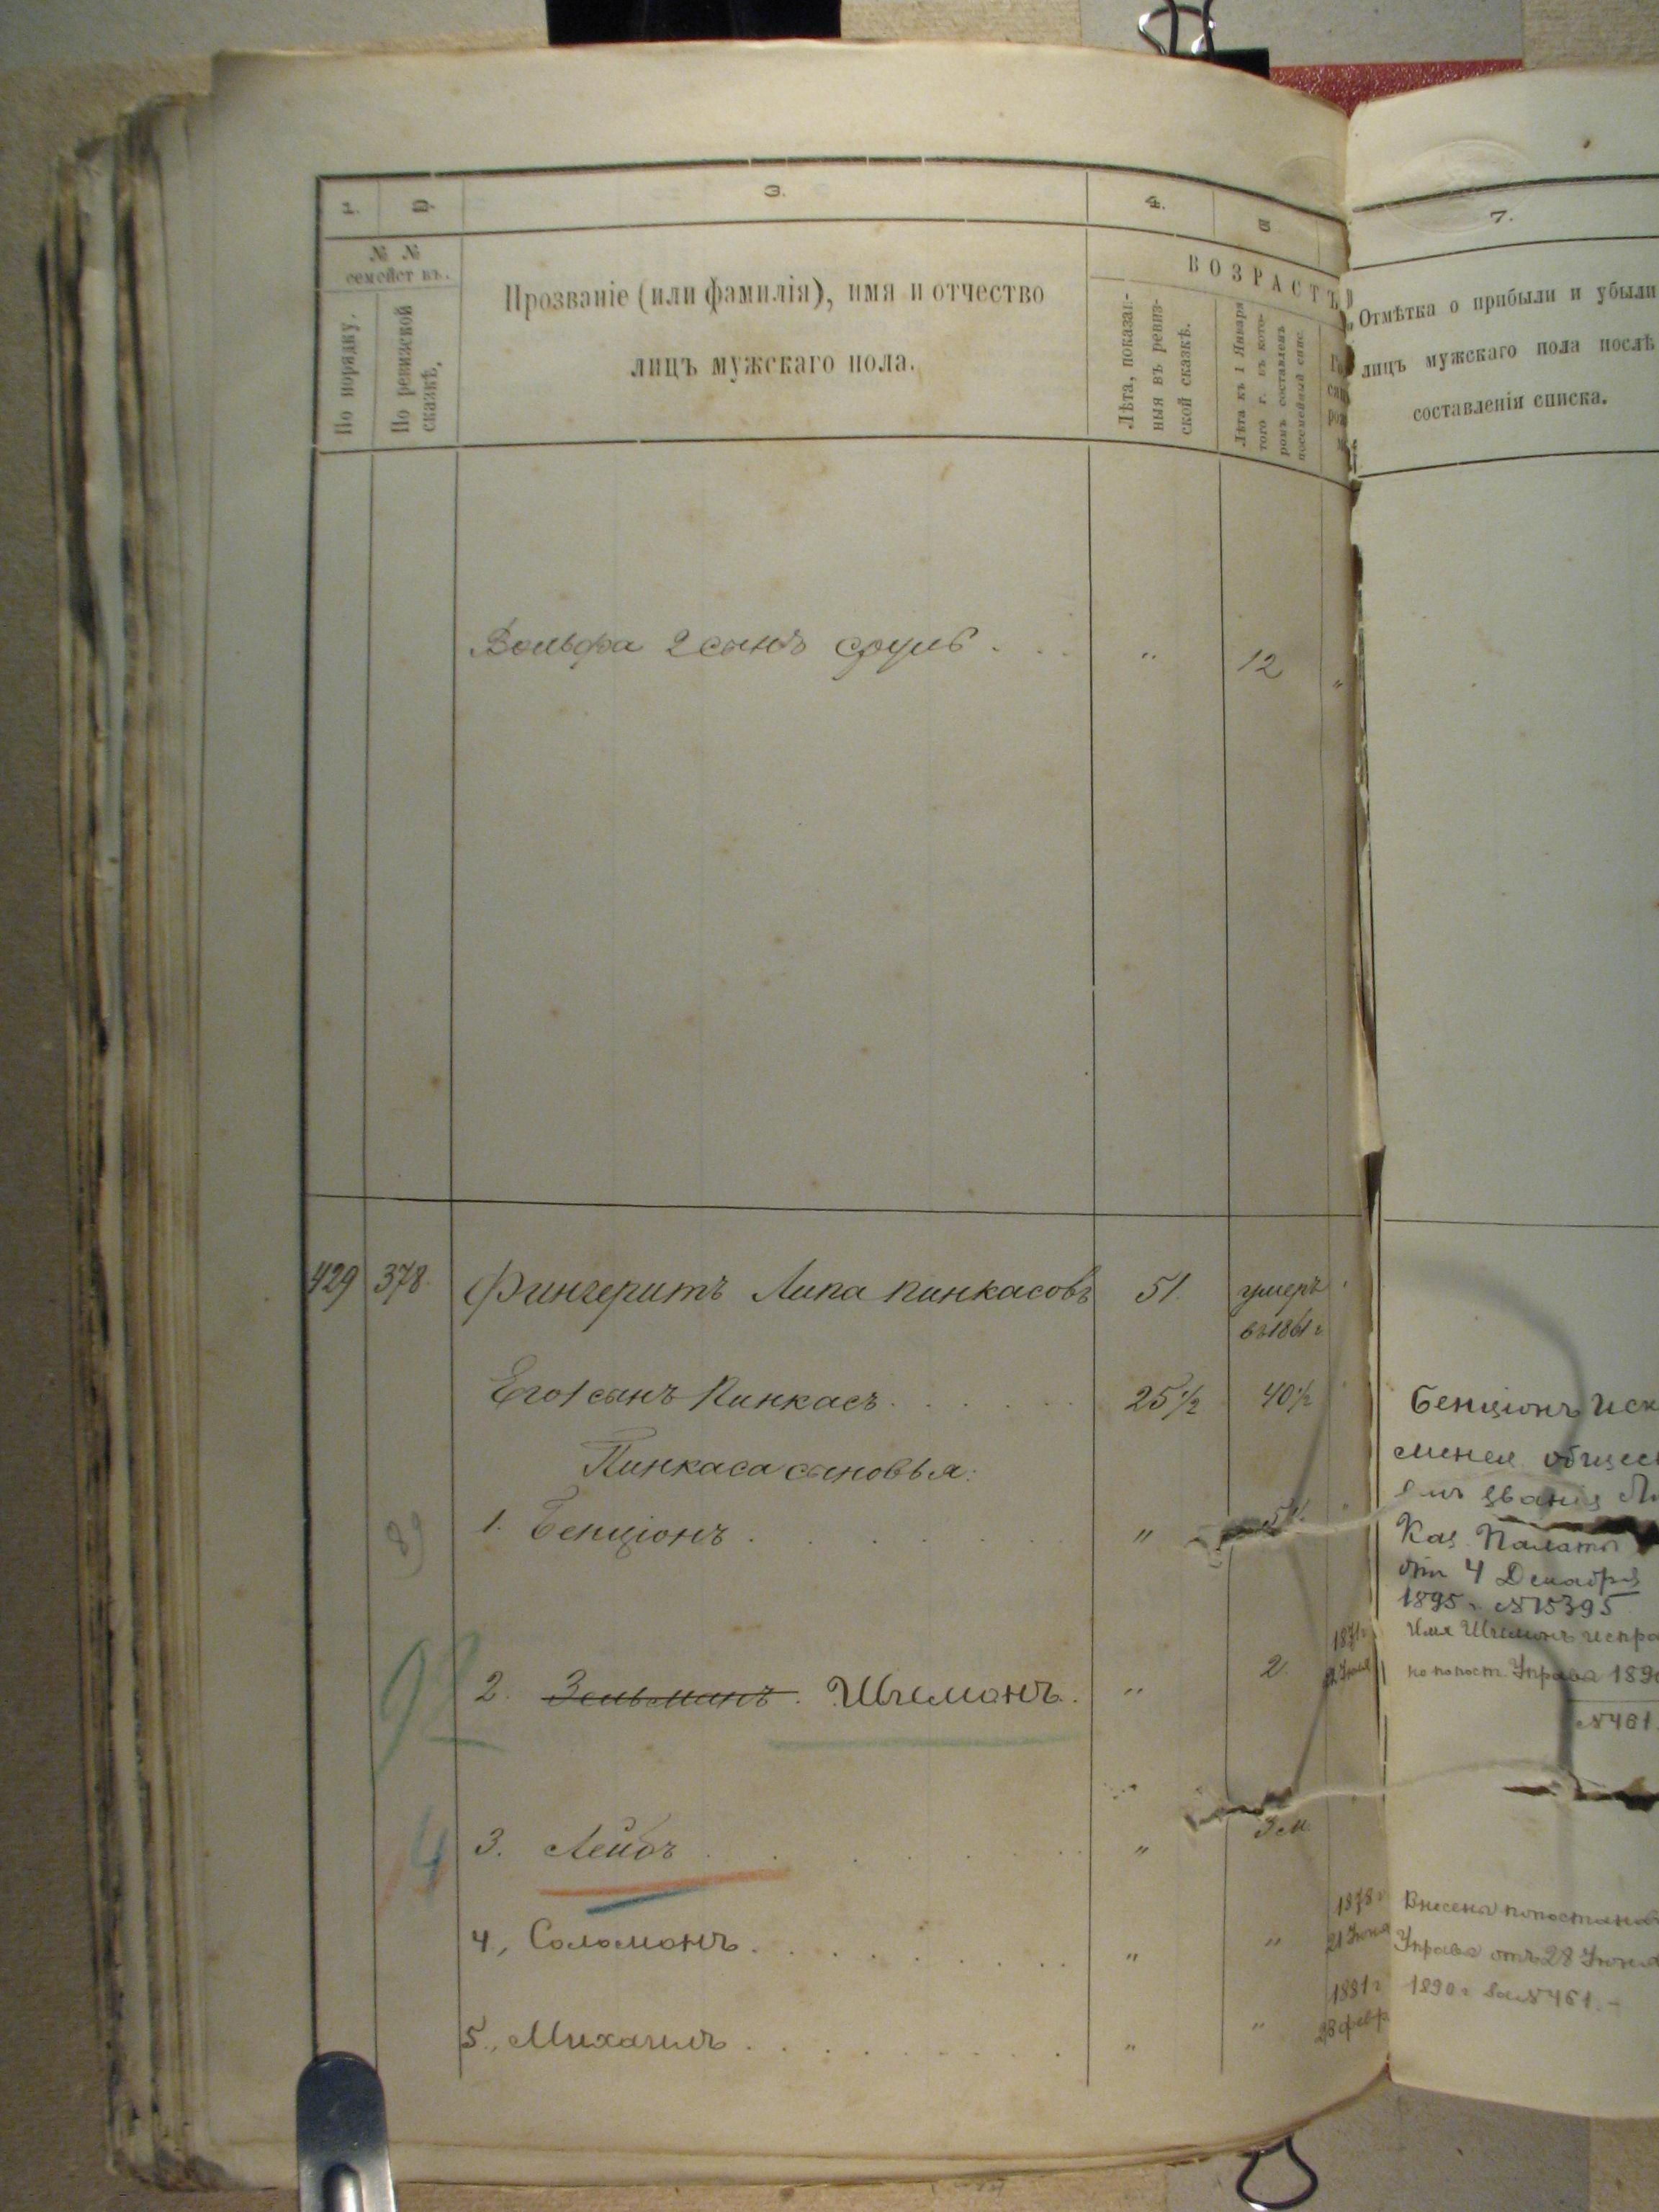 1. 2. 3. 4. 5 7.
№ №
семействъ.
По порядку.
По ревизской
сказкѣ.
Прозваніе (или фамилія), имя и отчество
лицъ мужскаго пола.
ВОЗРАСТЪ
Лѣта, показан-
ныя въ ревиз-
ской сказкѣ.
Лѣта къ 1 Января
того г. въ кото-
ромъ составленъ
посемейный спис.
Отмѣтка о прибыли и убыли
лицъ мужскаго пола послѣ
составленія списка.
Вольфа 2 сынъ Сруль . . . " 12 "
429 378. Фингеритъ Липа Пинкасовъ 51. умеръ
въ 1861 г
Его 1 сынъ Пинкасъ 25½ 40½
Пинкаса сыновья:
1. Бенціонъ "
89
2. Зельманъ. Шлемонъ. " 2
92
1871 г
3. Лейбъ " 3 м.
14
4, Соломонъ " " 1878 г
21 Іюня
5., Михаилъ " " 1881 г
28 февр.
Бенціонъ иск
общес
званія
Каз. Палаты
отъ 4 Декабря
1895 г. №15395
Имя Шлемонъ испра
по пост. Управы 189
№461.
Внесены по постанов
Управы отъ 28 Іюня
1890 г за №461.-